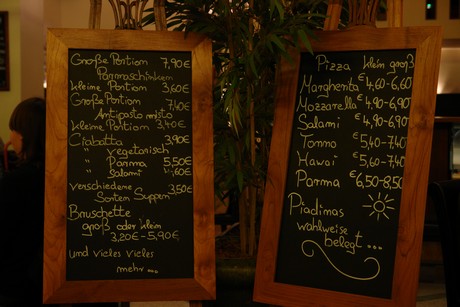 Große Portion 7,90€
Parmaschinken
kleine Portion 3,60€
Große Portion 7,40€
Antipasto misto
kleine Portion 3,40€
Ciabatta 3,90€
" vegetarisch
" Parma 5,50€
" Salami 4,60€
verschiedene 3,50€
Sorten Suppen
Bruschette
groß oder klein
3,20€ - 5,90€
und vieles vieles
mehr ...
Pizza klein groß
Margherita €4,60-6,60
Mozzarella €4,90-6,90
Salami €4,90-6,90
Tonno €5,40-7,40
Hawai €5,60-7,40
Parma €6,50-8,50
Piadinas
wahlweise
belegt ...